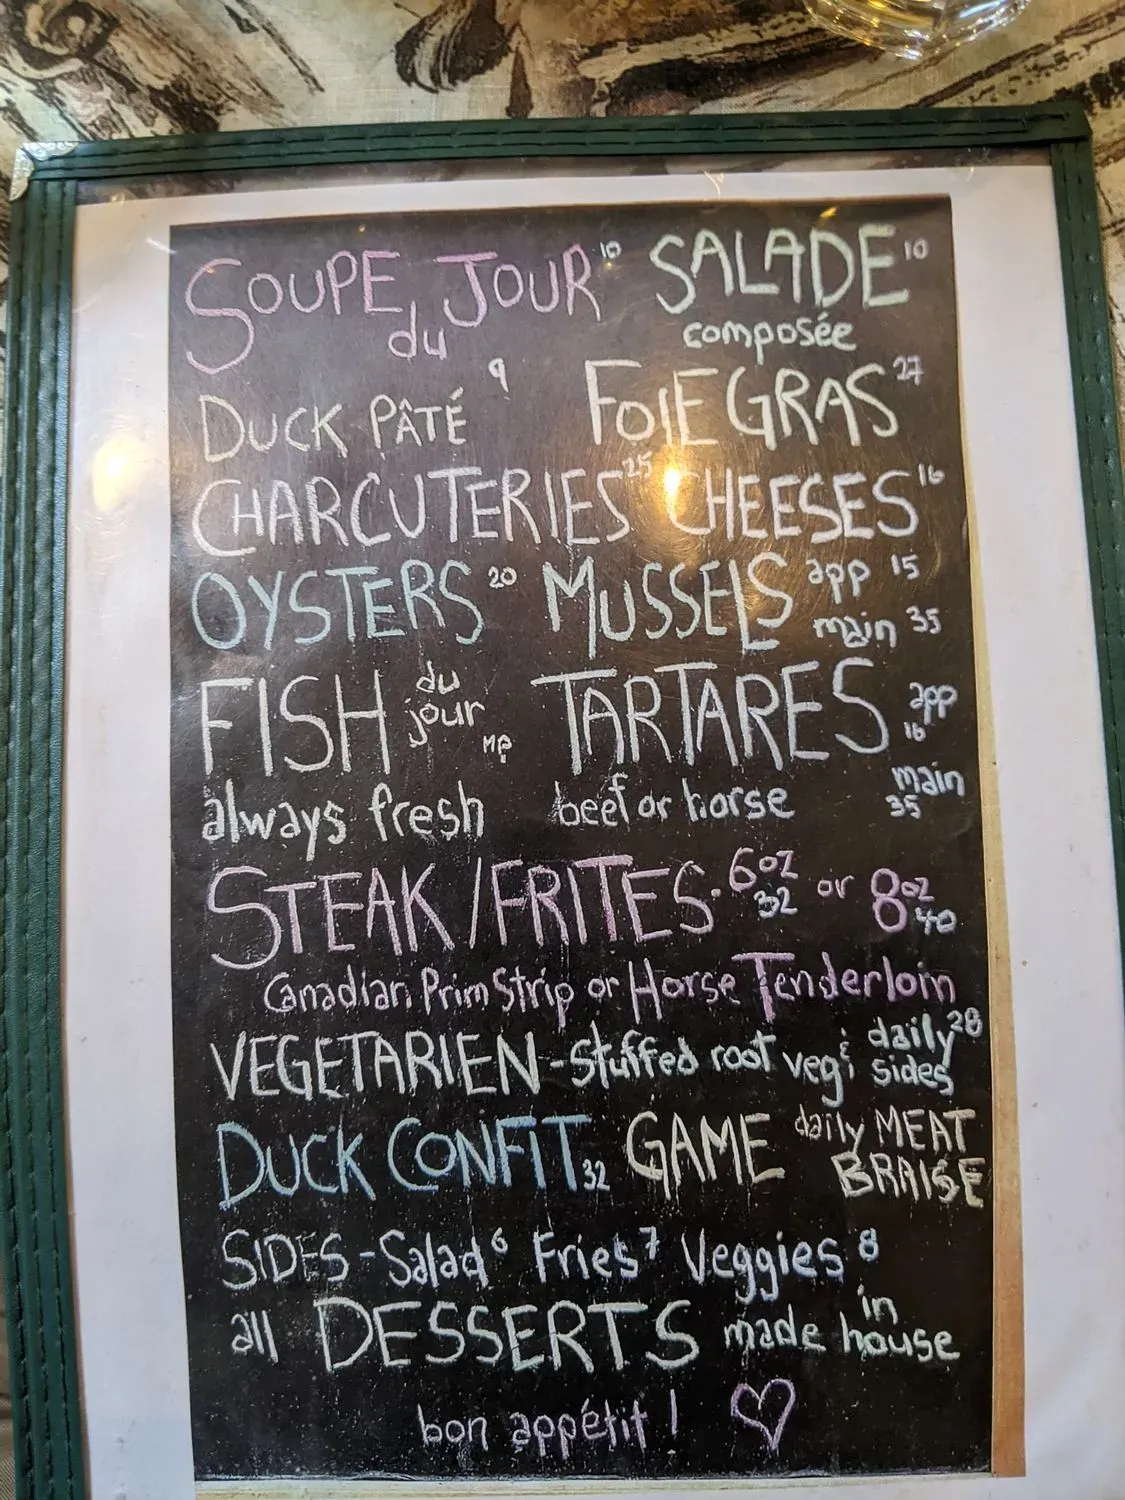 SOUPE du JOUR 10 SALADE 10
composée
DUCK PÂTÉ 9 FOIE GRAS 27
CHARCUTERIES 25 CHEESES 16
OYSTERS 20 MUSSELS app 15
main 35
FISH du jour MP TARTARES app 16
always fresh beef or horse main 35
STEAK/FRITES. 6oz 32 or 8oz 40
Canadian Prim Strip or Horse Tenderloin
VEGETARIEN - Stuffed root veg & daily sides 28
DUCK CONFIT 32 GAME daily MEAT BRAISE
SIDES - Salad 6 Fries 7 Veggies 8
all DESSERTS made in house
bon appétit !